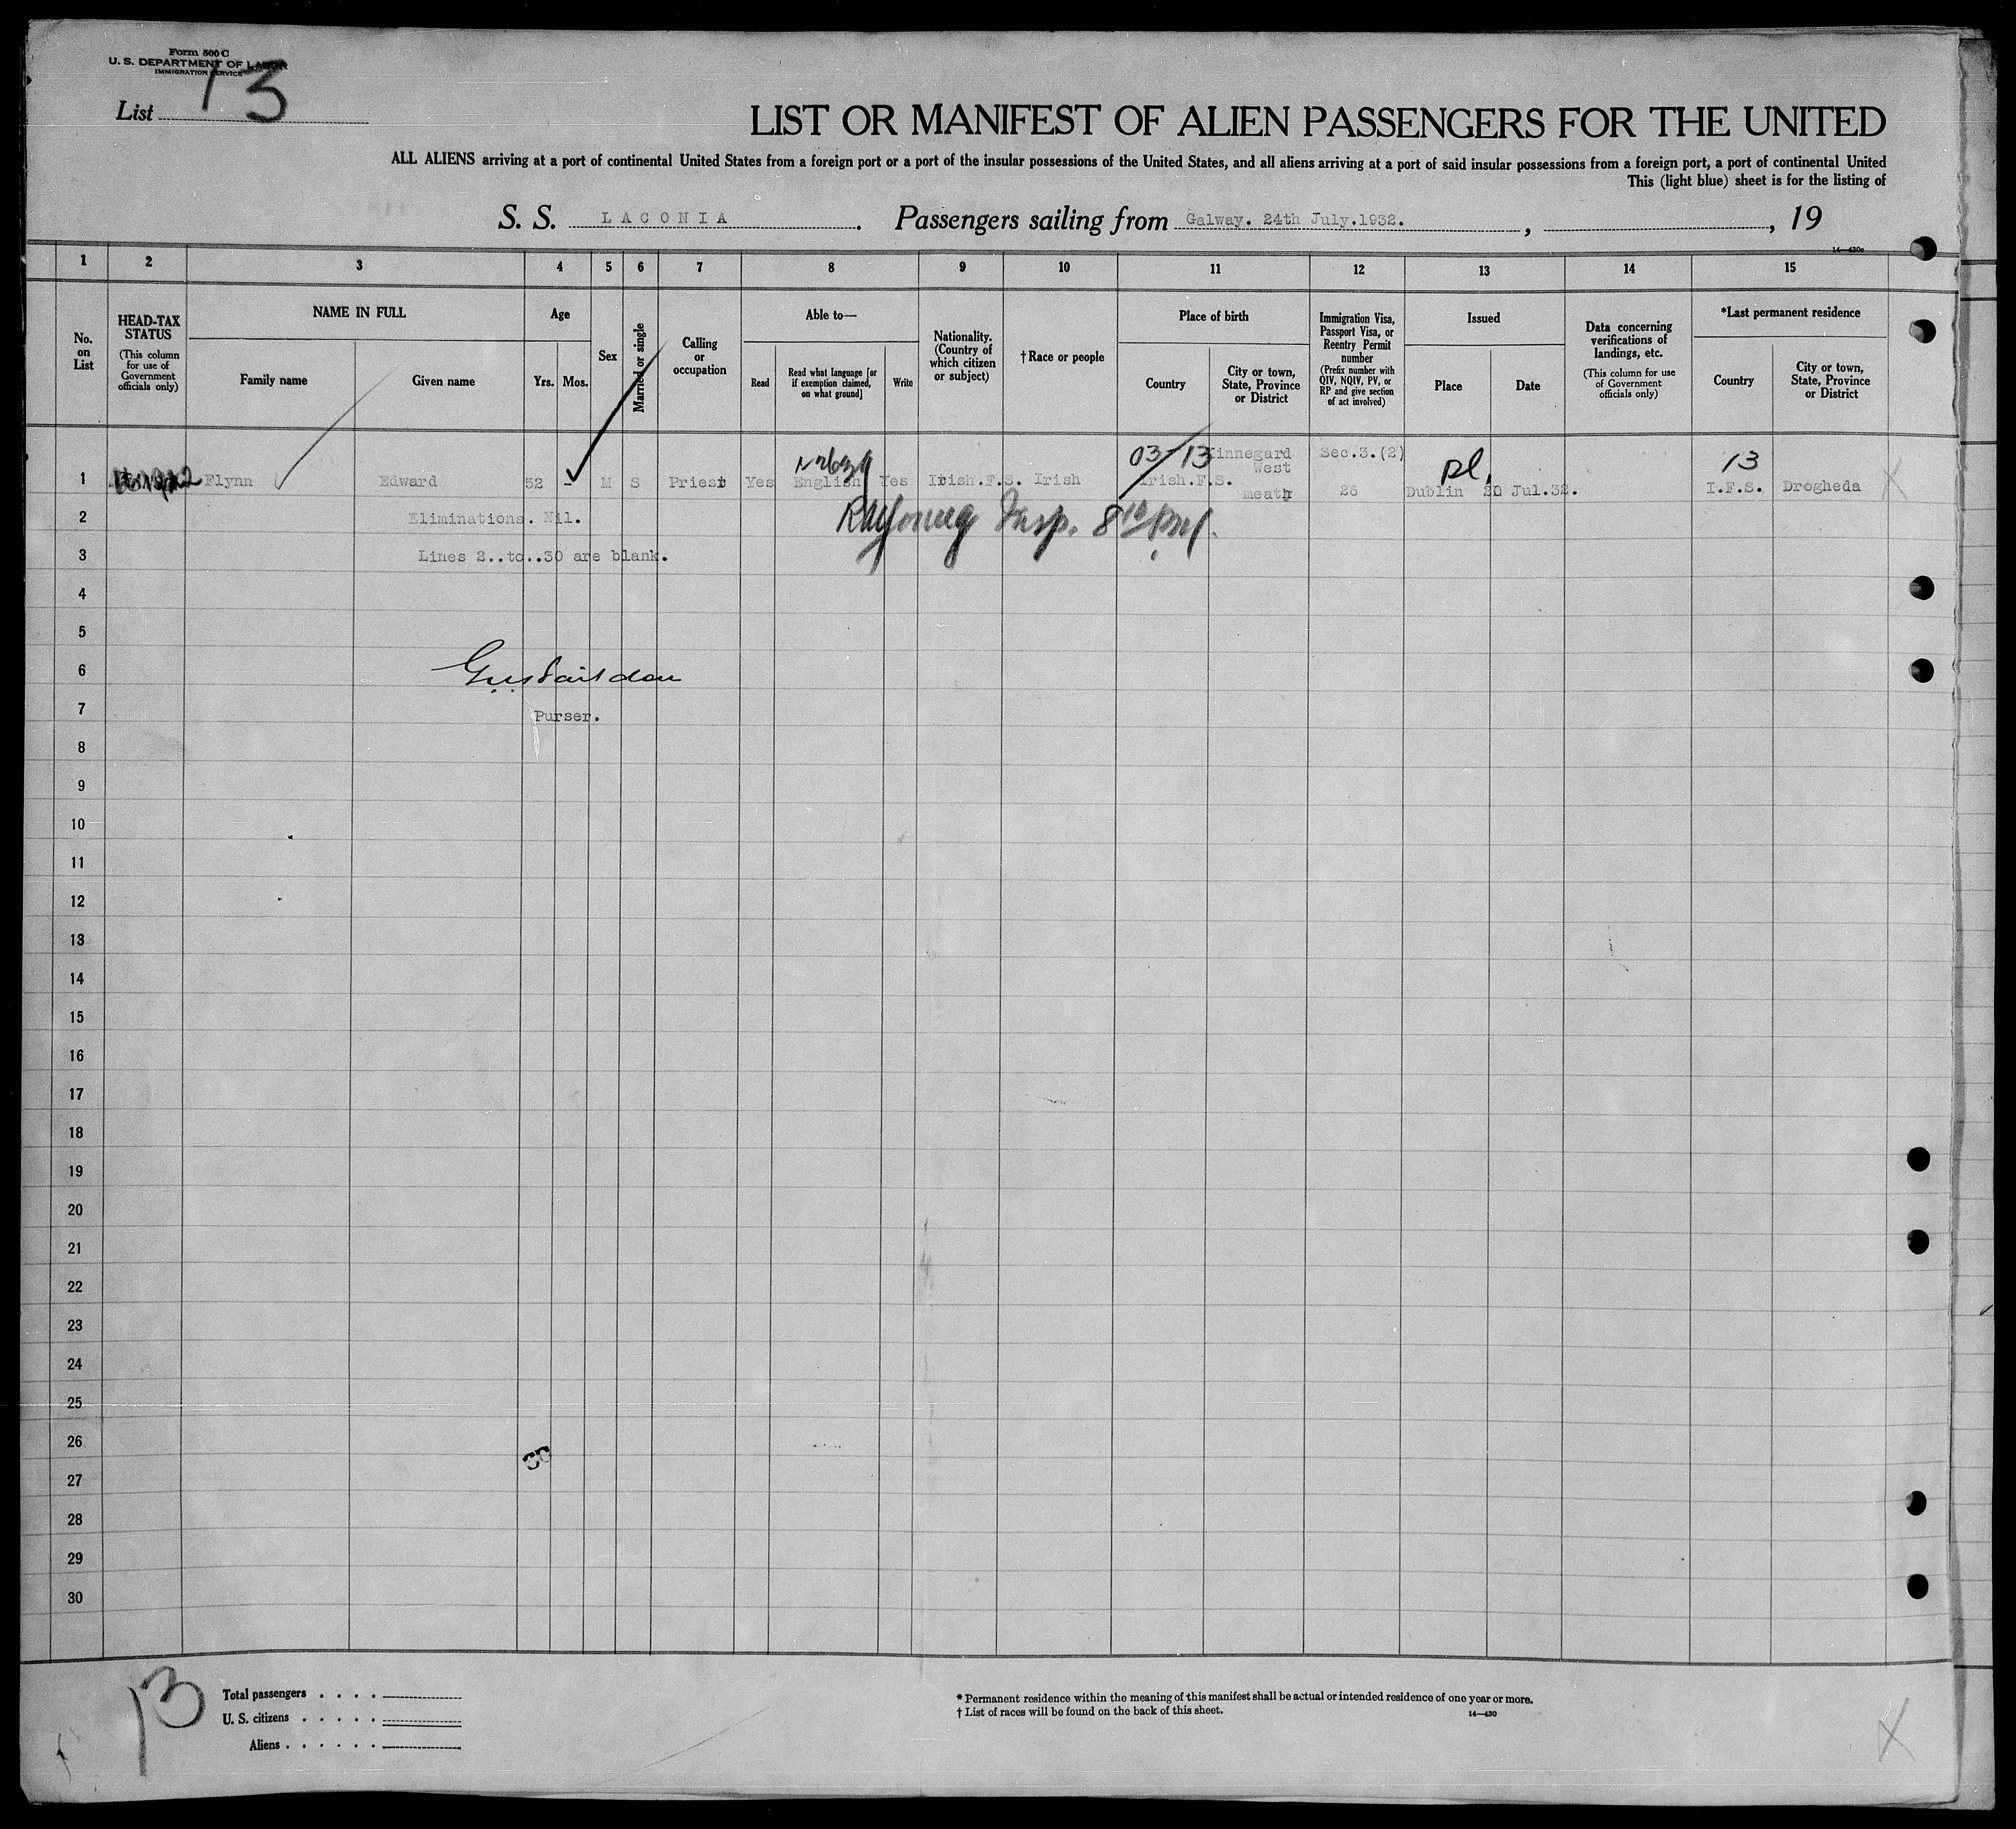 Form 500 C
U. S. DEPARTMENT OF LABOR
IMMIGRATION SERVICE
List 13
LIST OR MANIFEST OF ALIEN PASSENGERS FOR THE UNITED
ALL ALIENS arriving at a port of continental United States from a foreign port or a port of the insular possessions of the United States, and all aliens arriving at a port of said insular possessions from a foreign port, a port of continental United
This (light blue) sheet is for the listing of
S. S. LACONIA. Passengers sailing from Galway. 24th July.1932. , , 19
14—430c
1 2 3 4 5 6 7 8 9 10 11 12 13 14 15
No. on List
HEAD-TAX STATUS
(This column for use of Government officials only)
NAME IN FULL
Family name
Given name
Age
Yrs.
Mos.
Sex
Married or single
Calling or occupation
Able to—
Read
Read what language [or if exemption claimed, on what ground]
Write
Nationality. (Country of which citizen or subject)
†Race or people
Place of birth
Country
City or town, State, Province or District
Immigration Visa, Passport Visa, or Reentry Permit number
(Prefix number with QIV, NQIV, PV, or RP and give section of act involved)
Issued
Place
Date
Data concerning verifications of landings, etc.
(This column for use of Government officials only)
*Last permanent residence
Country
City or town, State, Province or District
03-13 Kinnegard West Sec.3.(2) 13
1 Flynn Edward 52 - M S Priest Yes English Yes Irish.F.S. Irish Irish.F.S. meath 26 Dublin 20 Jul.32. I.F.S. Drogheda X
2 Eliminations. Nil. Insp.
3 Lines 2..to..30 are blank.
4
5
6
7 Purser.
8
9
10
11
12
13
14
15
16
17
18
19
20
21
22
23
24
25
26
27
28
29
30
13
Total passengers . . . .
U. S. citizens . . . . .
Aliens . . . . . .
* Permanent residence within the meaning of this manifest shall be actual or intended residence of one year or more.
† List of races will be found on the back of this sheet.
14—430
X